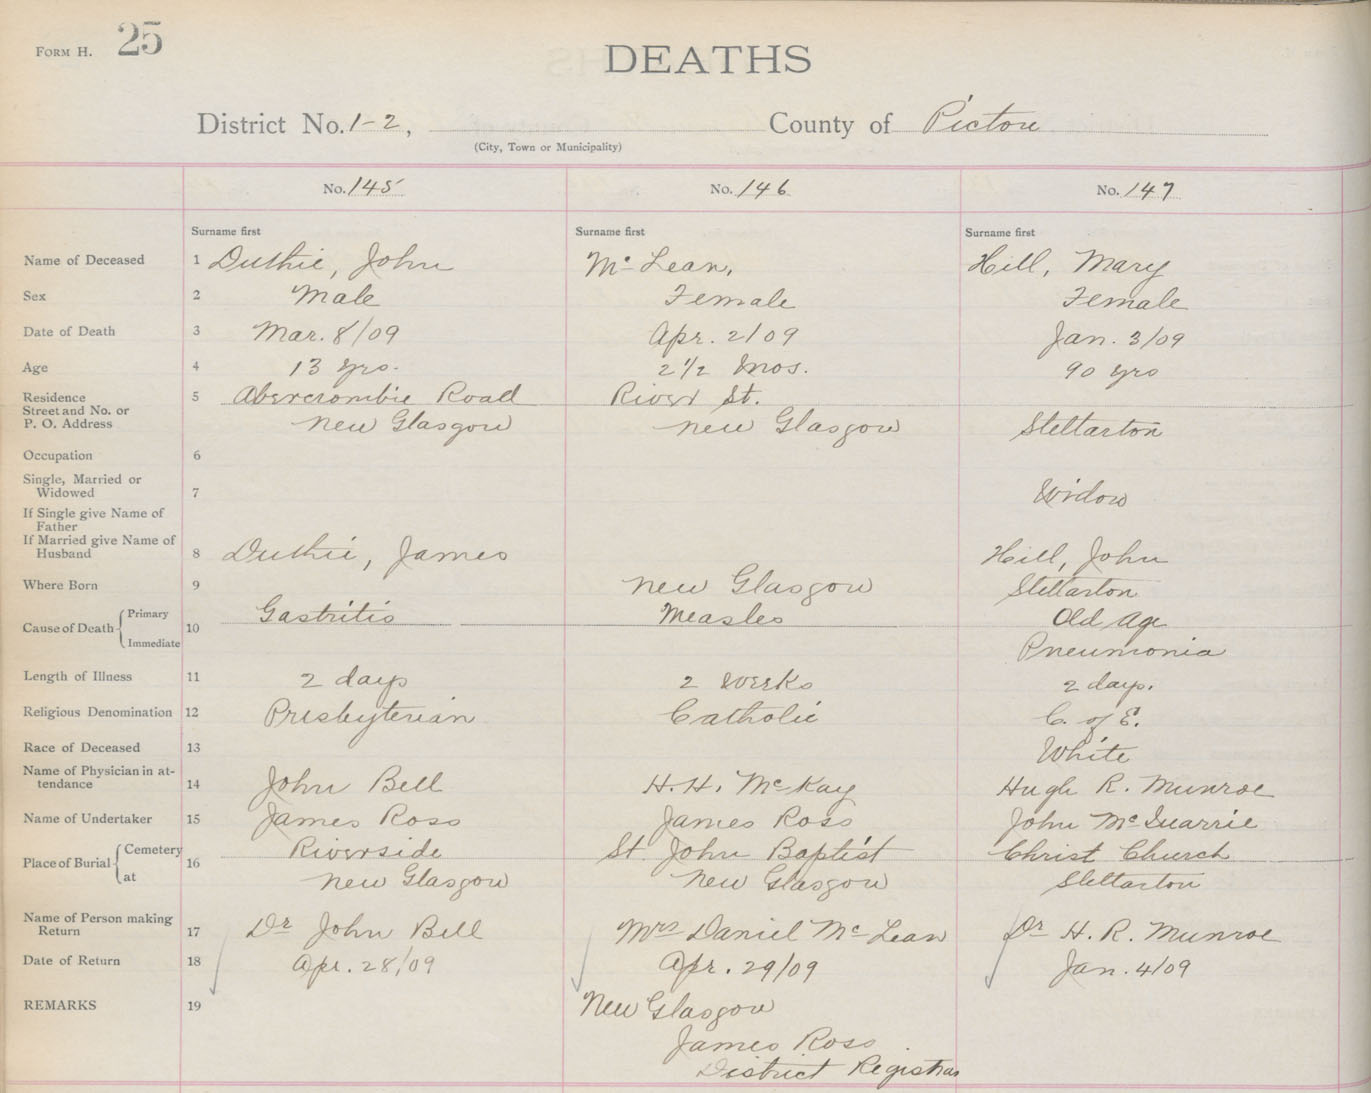 FORM H. 25
DEATHS
District No. 1-2, County of Pictou
(City, Town or Municipality)
No. 145 No. 146 No. 147
Surname first Surname first Surname first
Name of Deceased 1 Duthie, John Mc Lean, Hill, Mary
Sex 2 Male Female Female
Date of Death 3 Mar. 8/09 Apr. 2/09 Jan. 3/09
Age 4 13 yrs. 2 1/2 Mos. 90 yrs
Residence 5 Abercrombie Road River St.
Street and No. or
P. O. Address New Glasgow New Glasgow Stellarton
Occupation 6
Single, Married or
Widowed 7 Widow
If Single give Name of
Father
If Married give Name of
Husband 8 Duthie, James Hill, John
Where Born 9 New Glasgow Stellarton
Cause of Death Primary 10 Gastritis Measles Old Age
Immediate Pneumonia
Length of Illness 11 2 days 2 weeks 2 days.
Religious Denomination 12 Presbyterian Catholic C. of E.
Race of Deceased 13 White
Name of Physician in at-
tendance 14 John Bell H. H. McKay Hugh R. Munroe
Name of Undertaker 15 James Ross James Ross John McQuarrie
Place of Burial Cemetery 16 Riverside St. John Baptist Christ Church
at New Glasgow New Glasgow Stellarton
Name of Person making
Return 17 Dr John Bell Mrs Daniel Mc Lean Dr H. R. Munroe
Date of Return 18 Apr. 28/09 Apr. 29/09 Jan. 4/09
REMARKS 19 New Glasgow
James Ross
District Registrar